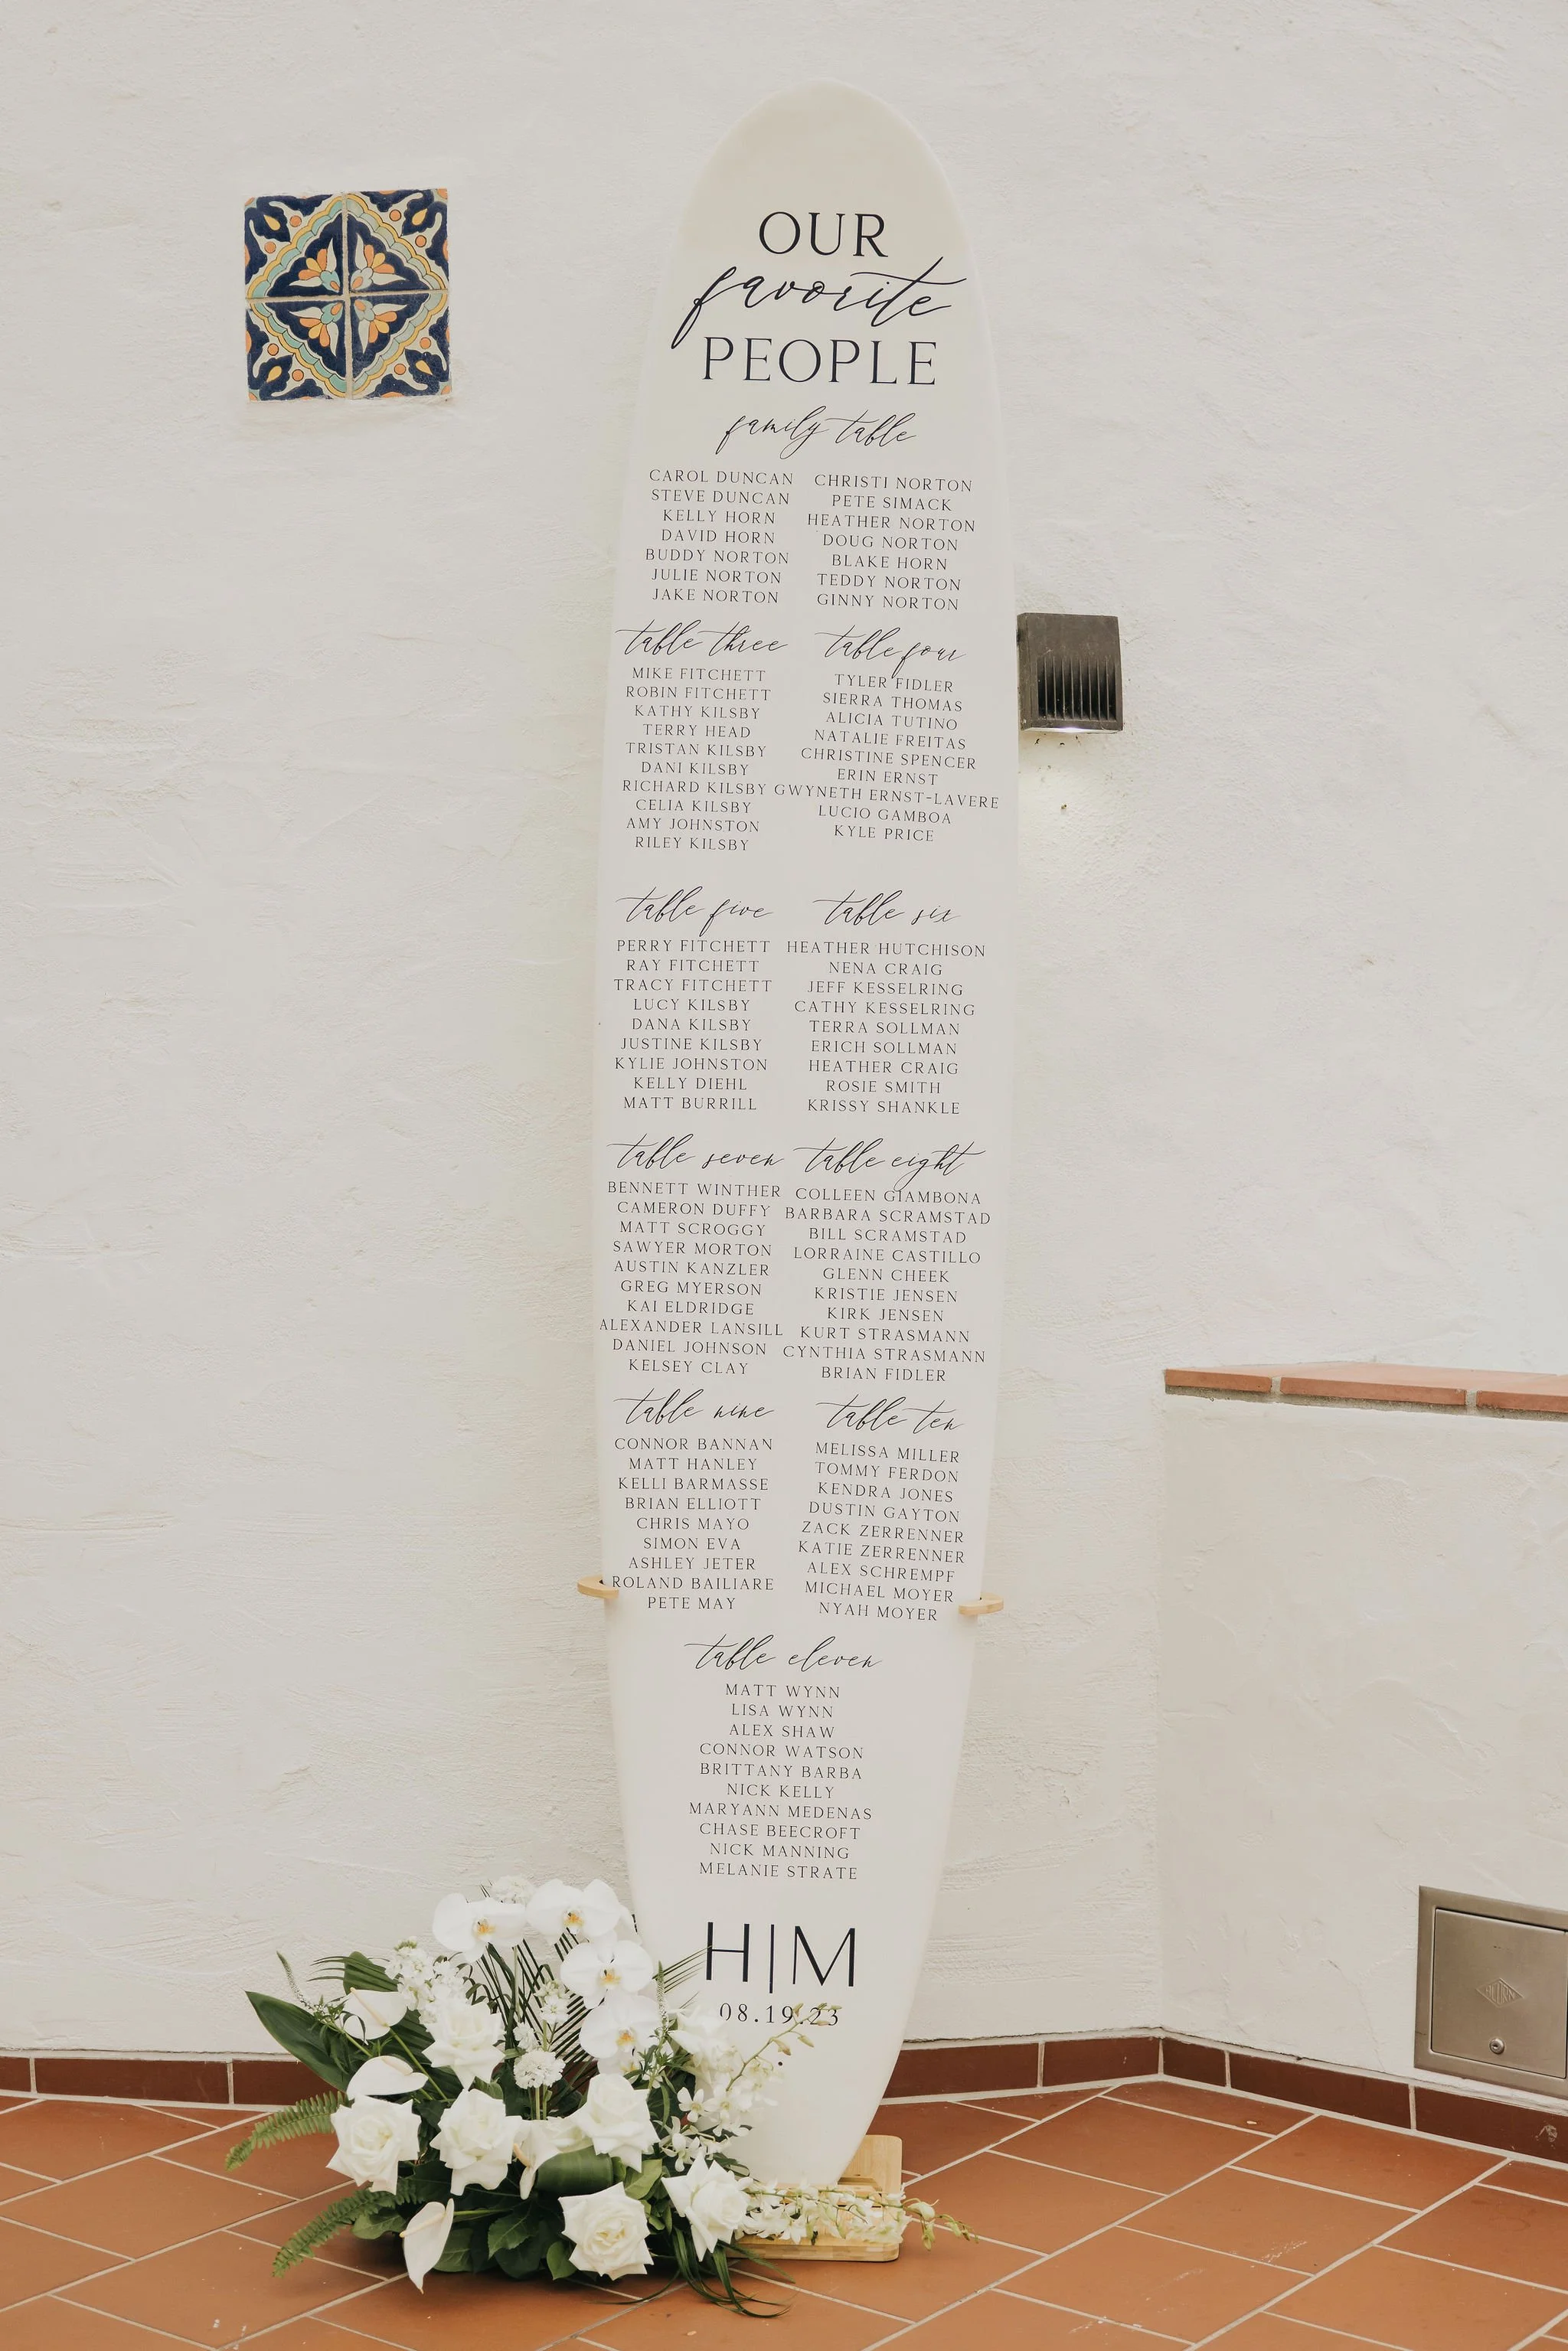 OUR
favorite
PEOPLE
family table
CAROL DUNCAN
STEVE DUNCAN
KELLY HORN
DAVID HORN
BUDDY NORTON
JULIE NORTON
JAKE NORTON
CHRISTI NORTON
PETE SIMACK
HEATHER NORTON
DOUG NORTON
BLAKE HORN
TEDDY NORTON
GINNY NORTON
table three
MIKE FITCHETT
ROBIN FITCHETT
KATHY KILSBY
TERRY HEAD
TRISTAN KILSBY
DANI KILSBY
RICHARD KILSBY
CELIA KILSBY
AMY JOHNSTON
RILEY KILSBY
table four
TYLER FIDLER
SIERRA THOMAS
ALICIA TUTINO
NATALIE FREITAS
CHRISTINE SPENCER
ERIN ERNST
GWYNETH ERNST-LAVERE
LUCIO GAMBOA
KYLE PRICE
table five
PERRY FITCHETT
RAY FITCHETT
TRACY FITCHETT
LUCY KILSBY
DANA KILSBY
JUSTINE KILSBY
KYLIE JOHNSTON
KELLY DIEHL
MATT BURRILL
table six
HEATHER HUTCHISON
NENA CRAIG
JEFF KESSELRING
CATHY KESSELRING
TERRA SOLLMAN
ERICH SOLLMAN
HEATHER CRAIG
ROSIE SMITH
KRISSY SHANKLE
table seven
BENNETT WINTHER
CAMERON DUFFY
MATT SCROGGY
SAWYER MORTON
AUSTIN KANZLER
GREG MYERSON
KAI ELDRIDGE
ALEXANDER LANSILL
DANIEL JOHNSON
KELSEY CLAY
table eight
COLLEEN GIAMBONA
BARBARA SCRAMSTAD
BILL SCRAMSTAD
LORRAINE CASTILLO
GLENN CHEEK
KRISTIE JENSEN
KIRK JENSEN
KURT STRASMANN
CYNTHIA STRASMANN
BRIAN FIDLER
table nine
CONNOR BANNAN
MATT HANLEY
KELLI BARMASSE
BRIAN ELLIOTT
CHRIS MAYO
SIMON EVA
ASHLEY JETER
ROLAND BAILIARE
PETE MAY
table ten
MELISSA MILLER
TOMMY FERDON
KENDRA JONES
DUSTIN GAYTON
ZACK ZERRENNER
KATIE ZERRENNER
ALEX SCHREMPF
MICHAEL MOYER
NYAH MOYER
table eleven
MATT WYNN
LISA WYNN
ALEX SHAW
CONNOR WATSON
BRITTANY BARBA
NICK KELLY
MARYANN MEDENAS
CHASE BEECROFT
NICK MANNING
MELANIE STRATE
H|M
08.19.23